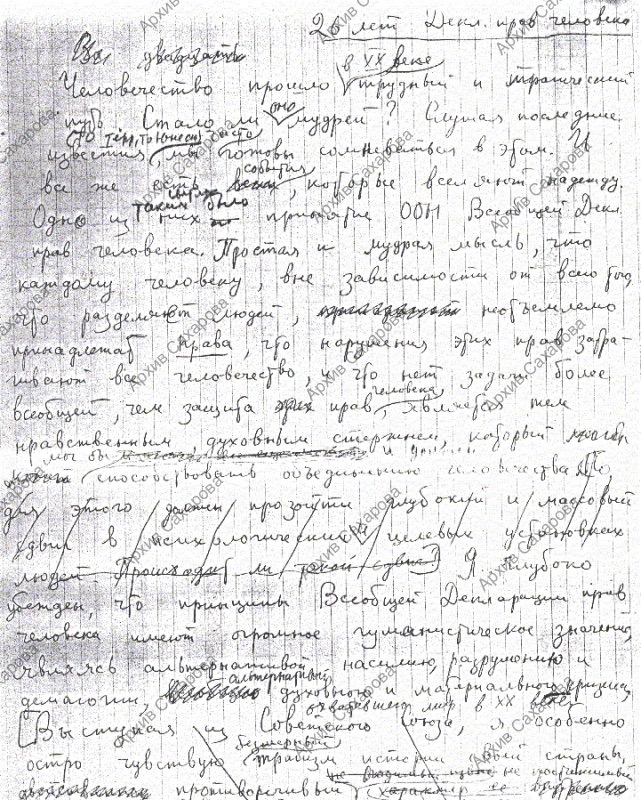 20 лет Декл. прав человека
За двадцать
в XX веке
Человечество прошло трудный и трагический
путь. Стало ли оно мудрей? Слушая последние
известия, мы готовы сомневаться в этом. И
все же есть события, которые вселяют надежду.
Одно из таких было принятие ООН Всеобщей Декл.
прав человека. Простая и мудрая мысль, что
каждому человеку, вне зависимости от всего того,
что разделяет людей, неотъемлемо
принадлежат права, что нарушения этих прав затра-
гивают все человечество, и что нет задачи более
всеобщей, чем защита этих прав человека является тем
нравственным, духовным стержнем, который
мог бы способствовать объединению человечества. Но
для этого должен произойти глубокий и массовый
сдвиг в психологических и целевых установках
людей. Происходит ли такой сдвиг? Я глубоко
убежден, что принципы Всеобщей Декларации прав
человека имеют огромное гуманистическое значение,
являясь альтернативой насилию, разрушению и
демагогии, альтернативой духовного и материального кризиса,
охватившего мир в XX веке.
[Выступая из Советского Союза, я особенно
остро чувствую безмерный трагизм истории моей страны,
противоречивый характер ее
Архив Сахарова